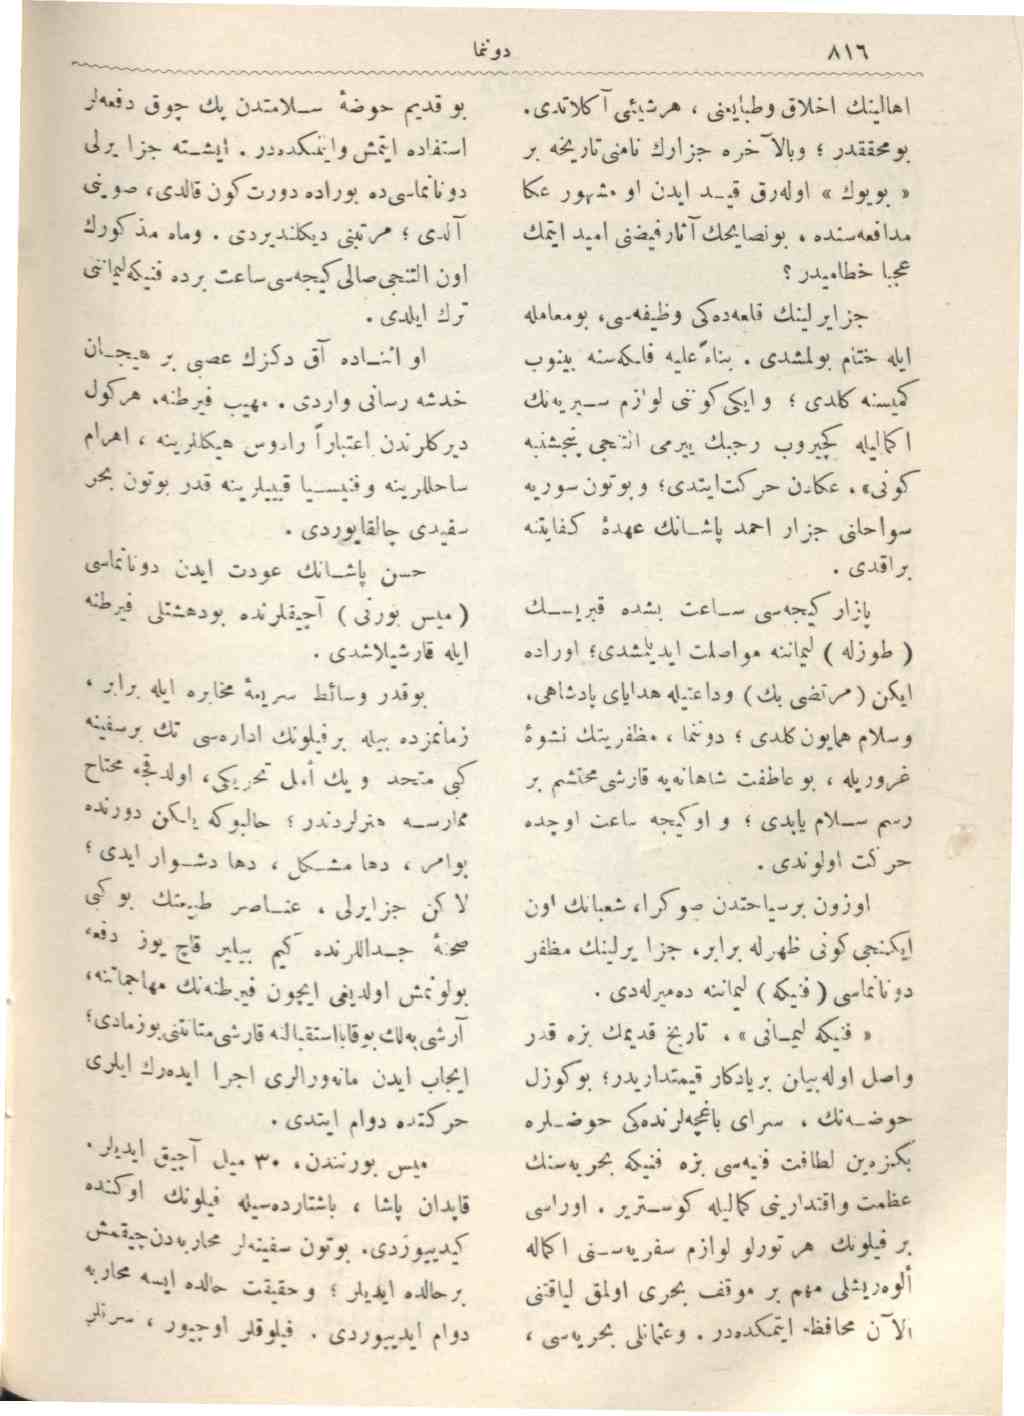 ٨١٦
دونما
اهالينك اخلاق وطبايعنى ، هر شيئى آكلاتدى .
بو محققدر ؛ وبالآخره جزارك نامنى تاريخه بر
« بويوك » اوله‌رق قيد ايدن او مشهور عكا
مدافعه‌سنده ، بو نصايحك آثار فيضنى اميد ايتمك
عجبا خطاميدر ؟
جزايرلينك قلعه‌ده‌كى وظيفه‌سى، بو معامله
ايله ختام بولمشدى . بناءً عليه فلكه‌سنه بينوب
كميسنه كلدى ؛ و ايكى كوننى لوازم سبريه‌نك
اكماليله كچيروب رجبك ييرمى التنجى پنجشنبه
كونى، عكادن حركت ايتدى؛ و بوتون سوريه
سواحلنى جزار احمد پاشانك عهدهٔ كفايتنه
براقدى .
پازار كيجه‌سى ساعت بشده قبريسك
( طوزله ) ليماننه مواصلت ايديلمشدى؛ اوراده
ايكن ( مرتضى بك ) وداعتيله هداياى پادشاهى،
و سلام همايون كلدى ؛ دوننما ، مظفريتك نشوهٔ
غروريله ، بو عاطفت شاهانه‌يه قارشى محتشم بر
رسم سلام ياپدى ؛ و او كيجه ساعت اوچده
حركت اولوندى .
اوزون بر سياحتدن صوكرا، شعبانك اون
ايكنجى كونى ظهرله برابر، جزايرلينك مظفر
دونانماسى ( فنيكه ) ليماننه دميرله‌دى .
« فنيكه ليمانى » ، تاريخ قديمك بزه قدر
واصل اوله‌بيلن بر يادكار قيمتداريدر؛ بو كوزل
حوضه‌نك ، سراى باغچه‌لرنده‌كى حوضلره
بكزه‌ين لطافت فنيه‌سى بزه فنيكه بحريه‌سنك
عظمت و اقتدارينى كماليله كوسترير . اوراسى
بر فيلونك هر تورلو لوازم سفريه‌سنى اكماله
ألويريشلى مهم بر موقف بحرى اولمق لياقتنى
الآن محافظه ايتمكده‌در . وعثمانلى بحريه‌سى ،
بو قديم حوضهٔ سلامتدن پك چوق دفعه‌لر
استفاده ايتمش وايتمكده‌در . ايشته جزايرلى
دونانماسى ده بوراده دورت كون قالدى، صوينى
آلدى ؛ مرتبنى ديكلنديردى . وماه مذكورك
اون التنجى صالى كيجه‌سى ساعت برده فنيكه ليماننى
ترك ايلدى .
او اثناده آق دكزك عصبى بر هيجان
خدشه رسانى واردى . مهيب فيرطنه، هركول
ديركلرندن اعتباراً رادوس هيكللرينه ، اهرام
ساحللرينه وفنيسيا قيييلرينه قدر بوتون بحر
سفيدى چالقايوردى .
حسن پاشانك عودت ايدن دونانماسى
( ميس بورنى ) آچيقلرنده بودهشتلى فيرطنه
ايله قارشيلاشدى .
بوقدر وسائط سريعهٔ مخابره ايله برابر ،
زمانمزده بيله بر فيلونك اداره‌سى تك بر سفينه
كبى متحد و يك أمل تحريكى، اولدقجه محتاج
ممارسه هنرلردندر ؛ حالبوكه يلكن دورنده
بوامر ، دها مشكل ، دها دشوار ايدى ؛
لاكن جزايرلى ، عناصر طبيعتك بو كبى
صحنهٔ جداللرنده كيم بيلير قاچ يوز دفعه
بولونمش اولديغى ايچون فيرطنه‌نك مهاجماتنه،
آرشى بهلك بو قابا استقبالنه قارشى متانتنى بوزمادى؛
ايجاب ايدن مانه‌ورالرى اجرا ايده‌رك ايلرى
حركتده دوام ايتدى .
ميس بورنندن، ٣٠ ميل آچيق ايديلر .
قاپدان پاشا ، باشتارده‌سيله فيلونك اوكنده
كيدييوردى. بوتون سفينه‌لر محاربه‌دن چيقمش
بر حالده ايديلر ؛ و حقيقت حالده ايسه محاربه
دوام ايدييوردى . فيلوقلر اوچيور ، سرنلر